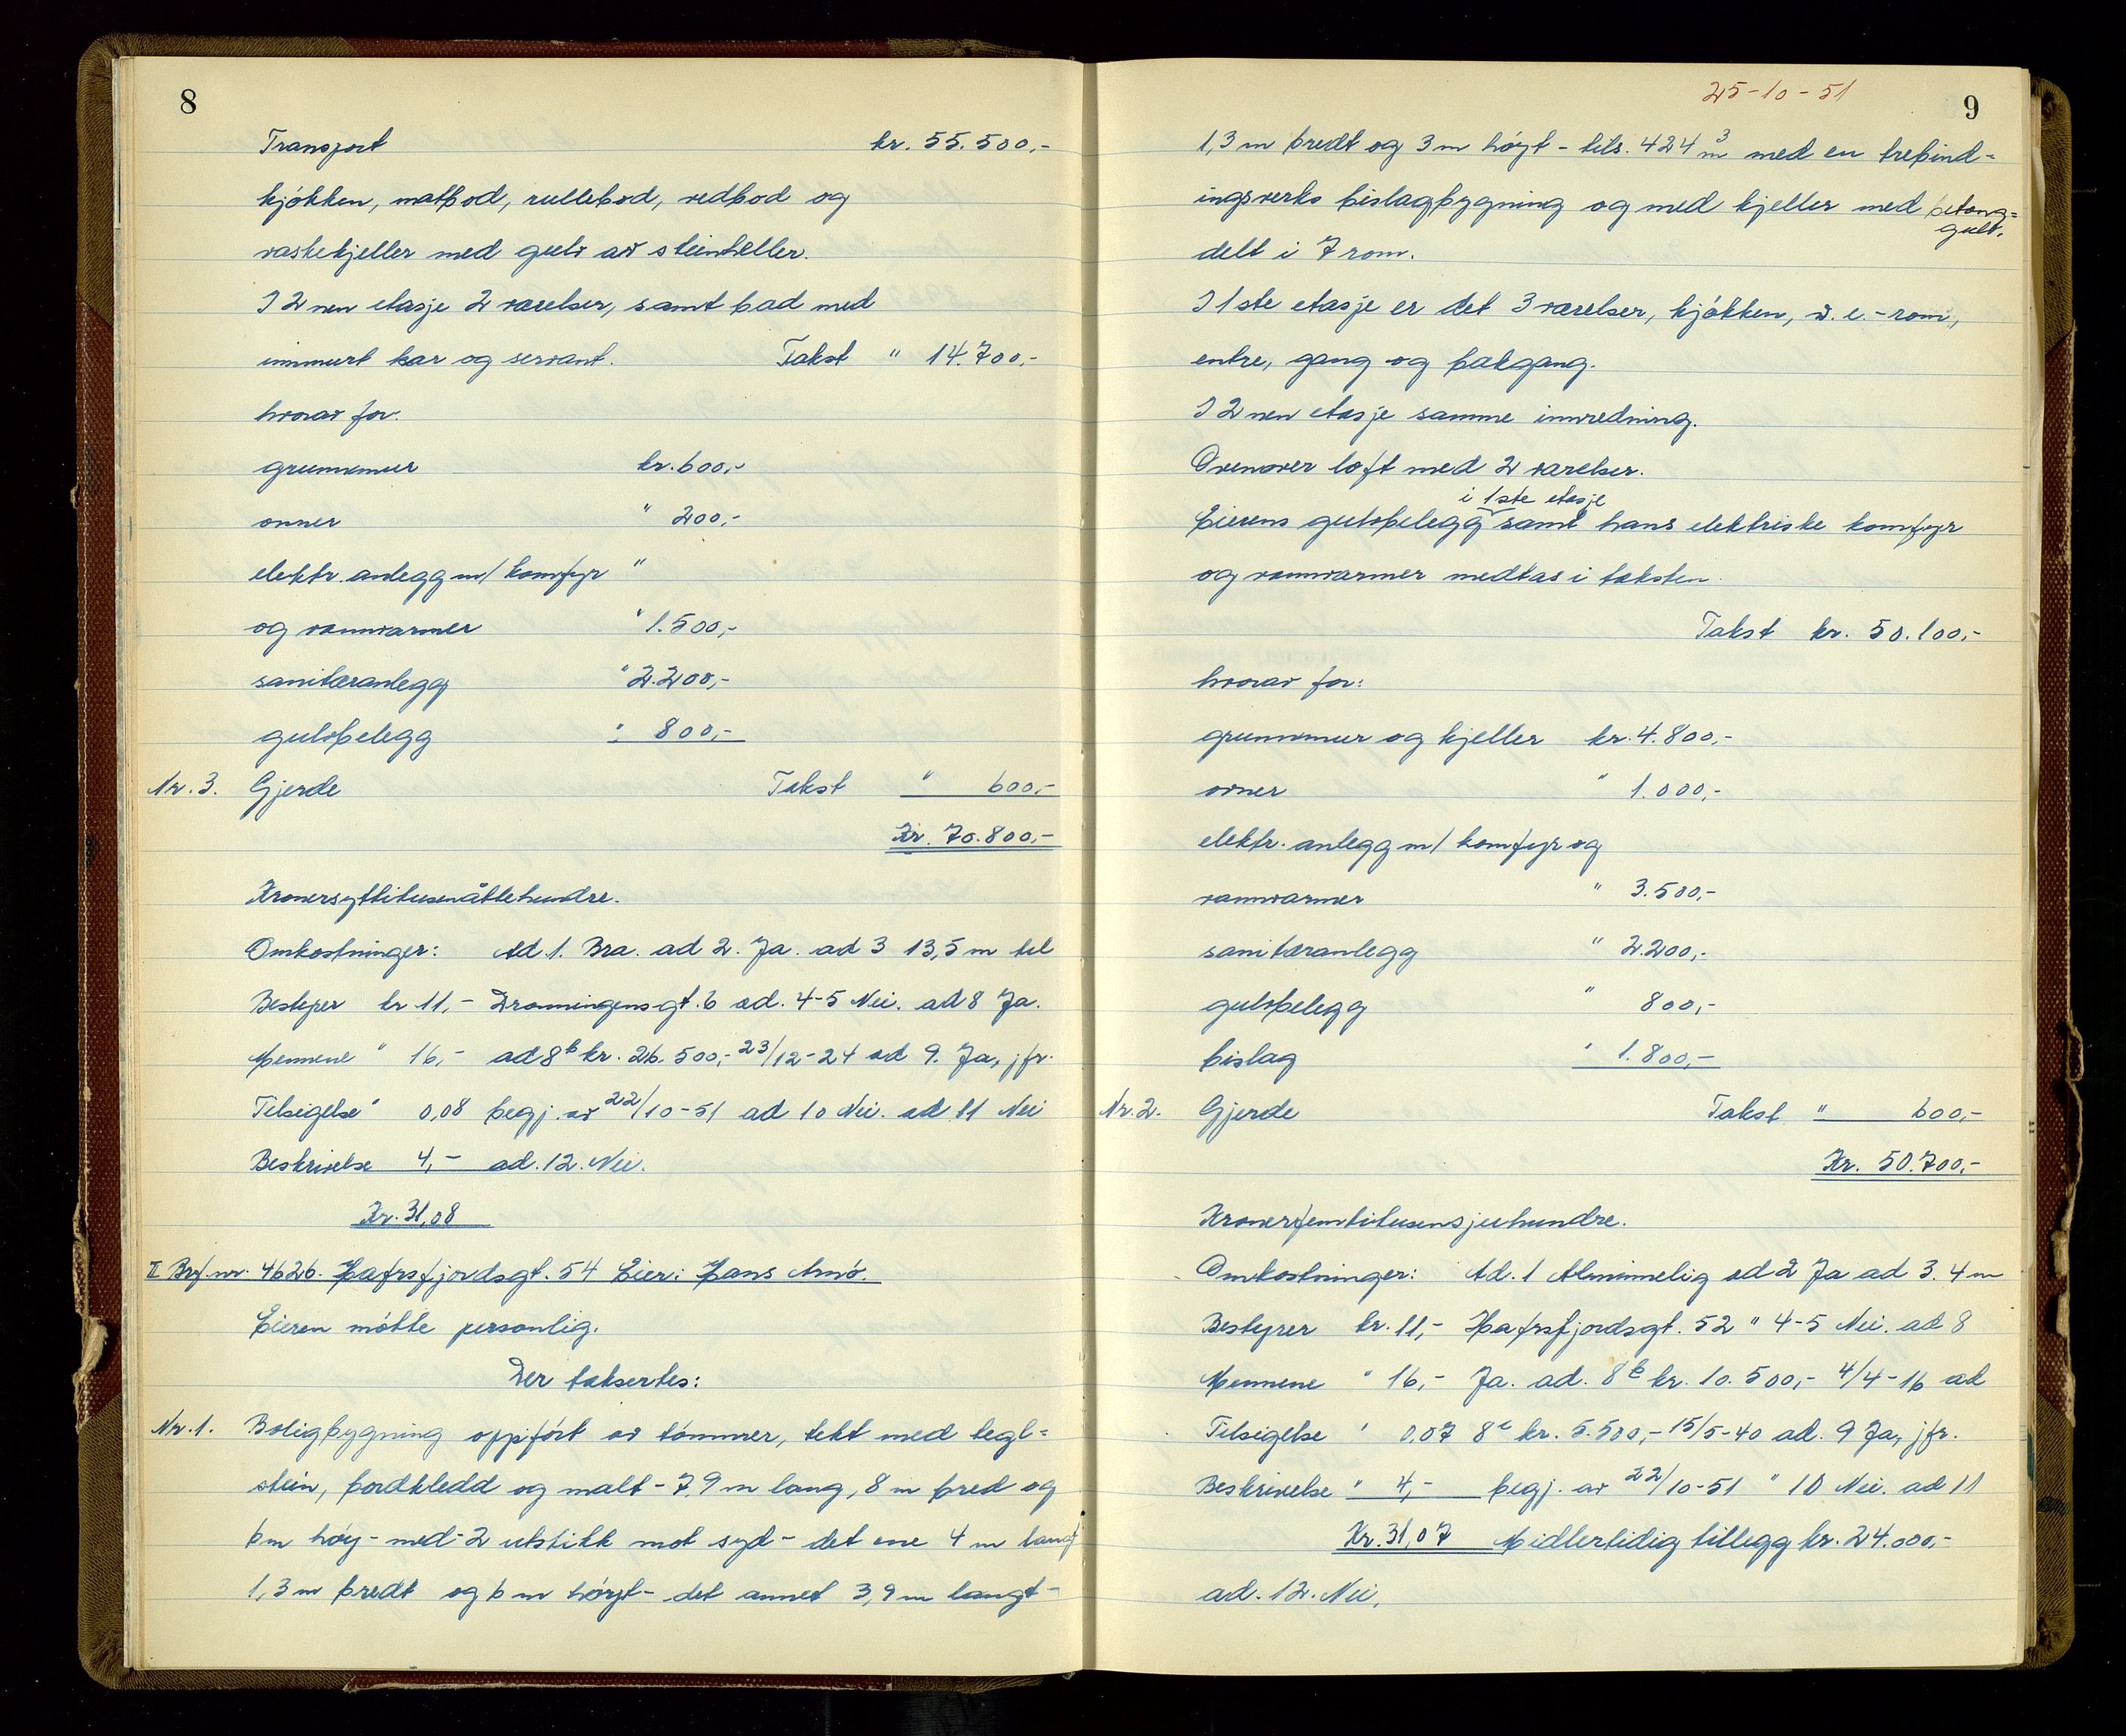 8
Transport kr. 55.500,-
kjøkken, matbod, rullebod, vedbod og
vaskekjeller med gulv av steinheller.
I 2nen etasje 2 værelser, samt bad med
innmurt kar og servant. Takst " 14.700,-
hvorav for:
grunnmur kr. 600,-
ovner " 200,-
elektr. anlegg m/ komfyr "
og vannvarmer " 1.500,-
sanitæranlegg " 2.200,-
gulvbelegg " 800,-
Nr. 3. Gjerde Takst " 600,-
Kr. 70.800,-
Kronersyttitusenåttehundre.
Omkostninger: Ad. 1. Bra. ad 2. Ja. ad 3 13,5 m til
Bestyrer kr 11,- Dronningensgt. 6 ad. 4-5 Nei. ad 8 Ja.
Mennene " 16,- ad 8b kr. 26.500,- 23/12-24 ad 9. Ja, jfr.
Tilsigelse " 0,08 begj. av 22/10-51 ad 10 Nei. ad 11 Nei
Beskrivelse 4,- ad. 12. Nei.
Kr. 31,08
II Brf. nr. 4626. Hafrsfjordsgt. 54 Eier: Hans Amø.
Eieren møtte personlig.
Der taksertes:
Nr. 1. Boligbygning oppført av tømmer, tekt med tegl=
stein, bordkledd og malt - 7,9 m lang, 8 m bred og
6 m høy - med 2 utstikk mot syd - det ene 4 m langt
1,3 m bredt og 6 m høyt - det annet 3,9 m langt -
25-10-51
9
1,3 m bredt og 3 m høyt - tils. 424 m³ med en trebind=
ingsverks bislagbygning og med kjeller med betong=
gulv.
delt i 7 rom.
I 1ste etasje er det 3 værelser, kjøkken, w.c.-rom,
entre, gang og bakgang.
I 2nen etasje samme innredning.
Ovenover loft med 2 værelser.
i 1ste etasje
Eierens gulvbelegg samt hans elektriske komfyr
og vannvarmer medtas i taksten.
Takst kr. 50.100,-
hvorav for:
grunnmur og kjeller kr. 4.800,-
ovner " 1.000,-
elektr. anlegg m/ komfyr og
vannvarmer " 3.500,-
sanitæranlegg " 2.200,-
gulvbelegg " 800,-
bislag " 1.800,-
Nr. 2. Gjerde Takst " 600,-
Kr. 50.700,-
Kronerfemtitusensjuhundre.
Omkostninger: Ad. 1 Alminnelig ad 2 Ja ad 3. 4 m
Bestyrer kr. 11,- Hafrsfjordsgt. 52 " 4-5 Nei. ad 8
Mennene " 16,- Ja. ad. 8b kr. 10.500,- 4/4-16 ad
Tilsigelse " 0,07 8c kr. 5.500,- 15/5-40 ad. 9 Ja, jfr.
Beskrivelse " 4,- begj. av 22/10-51 " 10 Nei. ad 11
Kr. 31,07 Midlertidig tillegg kr. 24.000,-
ad. 12. Nei.